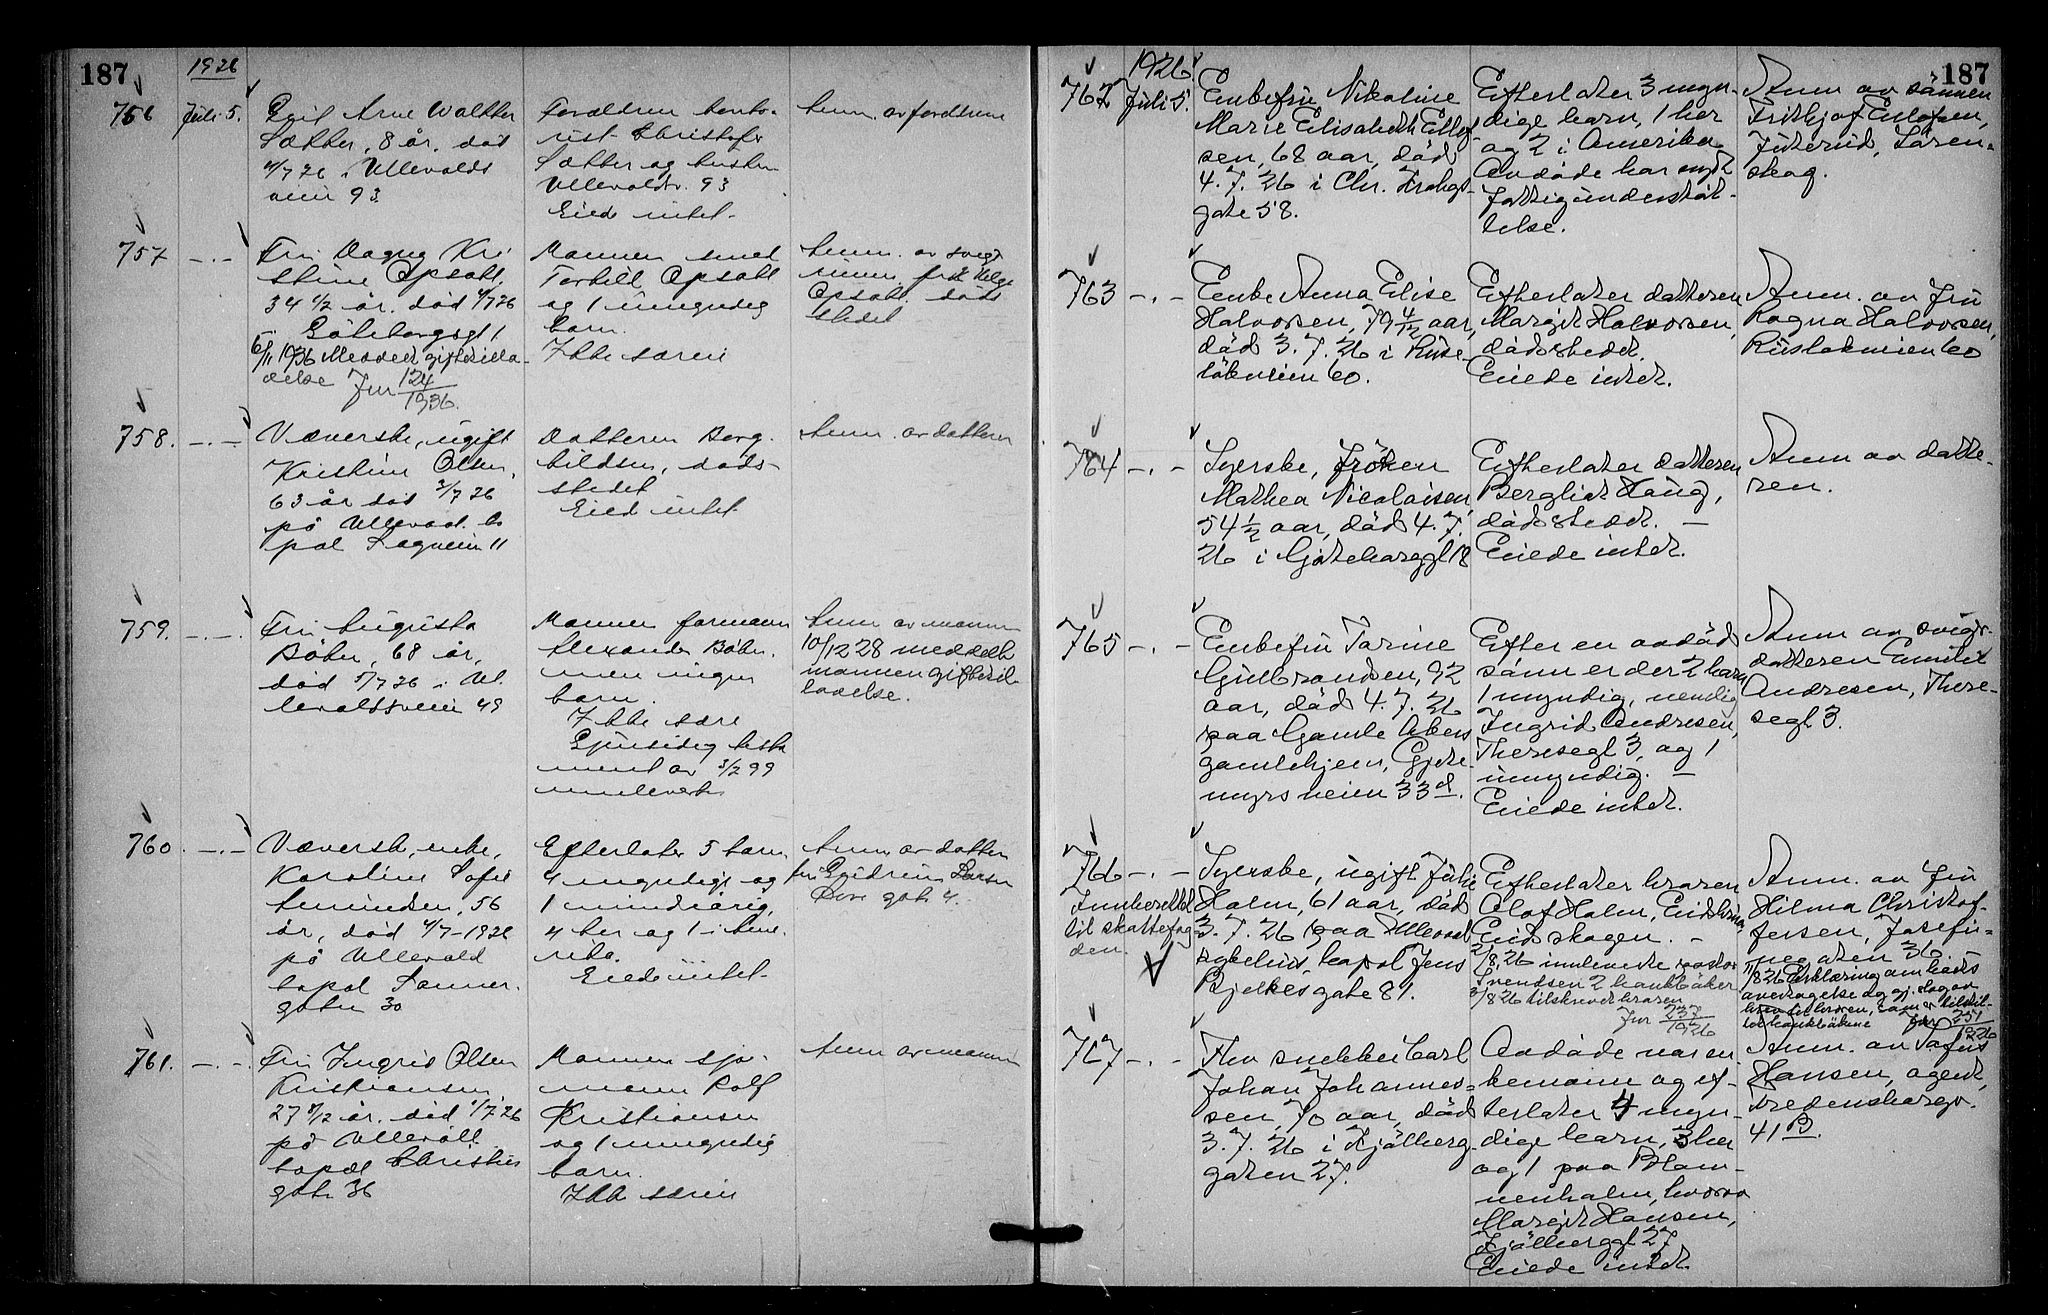 187
1926
756
Juli 5.
Egil Arne Walther
Sæther, 8 år, død
4/7 26 i Ullevolds
veien 93
Forældrene konto-
rist Christofer
Sæther og hustru
Ullevoldsv. 93
Eiede intet.
Anm. av forældrene
757
—.—
Fru Dagny Kri
stine Opsahl,
34 1/2 år. død 4/7 26
Göteborggt 1
6/11 1936 Meddelt giftestilla
delse Jnr 124
1936.
Mannen smed
Torkild Opsahl
og 1 umyndig
barn.
Ikke særeie
Anm. av svoger
Opsahl døds
stedet
758.
—.—
Væverske, ugift
Kristine Olsen,
63 år død 2/7 26
på Ullevaal ho
pal Sagveien 11
Datteren Borg-
hildsen, døds-
stedet
Eied intet
Anm. av datteren
759.
—.—.
Fru Augusta
Böhn, 68 år,
død 5/7 26 i Ul
levoldsveien 49
Mannen formann
Alexander Böhn.
men ingen
barn.
Ikke særeie
Gjensidig testa
ment av 3/2 99
innlevert
Anm av mannen
10/12 28 meddelt
mannen giftestil
ladelse.
760.
—.—
Væverske, enke,
Karoline Sofie
Amundsen, 56
år, død 4/7-1926
på Ullevold
hopal Sanner-
gaten 30
Efterlater 5 barn
4 myndige og
1 mindreårig,
4 her og 1 i Ame
rika.
Eiede intet
Anm av datter
fru Gudrun Larsen
gate 4.
761.
—.—.
Fru Ingrid Olsen
Kristiansen
27 8/12 år. død 1/7 26
på Ullevåll
hopal Christies
gate 36
Mannen sjø-
mann Rolf
Kristiansen
og 1 umyndig
barn
Ikke særeie
Anm av mannen
187
1926
762
Juli 5.
Enkefru Nikoline
Marie Elisabeth Ellef-
sen, 68 aar, död
4. 7. 26 i Chr. Krohgs-
gate 58.
Efterlater 3 myn-
dige barn, 1 her
og 2 i Amerika.
Avdöde har nydt
fattigunderstöt-
telse.
Anm av sönnen
Frithjof Ellefsen,
Futerud, Lören-
skog.
763
—.—
Enke Anna Elise
Halvorsen, 79 4/12 aar,
död 3. 7. 26 i Ruse-
lökveien 60.
Efterlater datteren
Margit Halvorsen,
dödsstedet.
Eiede intet.
Anm. av fru
Ragna Halvorsen,
Ruslökveien 60
764
—.—
Syerske, fröken
Mathea Nicolaisen,
54 1/2 aar, död 4. 7.
26 i Gjöteborggt 18
Efterlater datteren
Bergliot Haug,
dödsstedet. —
Eiede intet.
Anm av datte-
ren.
765
—.—
Enkefru Tarine
Gulbrandsen, 92
aar, död 4. 7. 26
paa Gamle Akers
gamlehjem, Gjete-
myrsveien 33 d.
Efter en avdöd
sönn er der 2 barn
1 myndig, nemlig
Ingrid Andresen,
Theresegt 3, og 1
umyndig. —
Eiede intet.
Anm av sviger-
datteren Emilie
Andresen, There-
segt 3.
766
—.—
Innberettet
til skattefog
den.
Syerske, ugift Julie
Holm, 61 aar, död
3. 7. 26 paa Ullevaal
sykehus, hopal Jens
Bjelkesgate 81.
Efterlater broren
Olof Holm,
Eidskogen. —
2/8 26 innleverte pastor
Svendsen 2 bankböker
3/8 26 tilskrevet broren
Jnr 237
1926
Anm. av fru
Hilma Christof-
fersen, Josefi-
negaten 36. —
11/8 26 Erklæring om boets
overtagelse
Jnr 251
1926
767
—.—
Fhv snekker Carl
Johan Johannes-
sen, 70 aar, död
3. 7. 26 i Kjölberg-
gaten 27.
Avdöde var en-
kemann og ef-
terlater 4 myn-
dige barn, 3 her
og 1 paa Blom-
menholm, hvorav
Margit Hansen,
Kjölberggt 27
Eiede intet.
Anm. av
Hansen, agent,
Fredensborgv.
41 B.